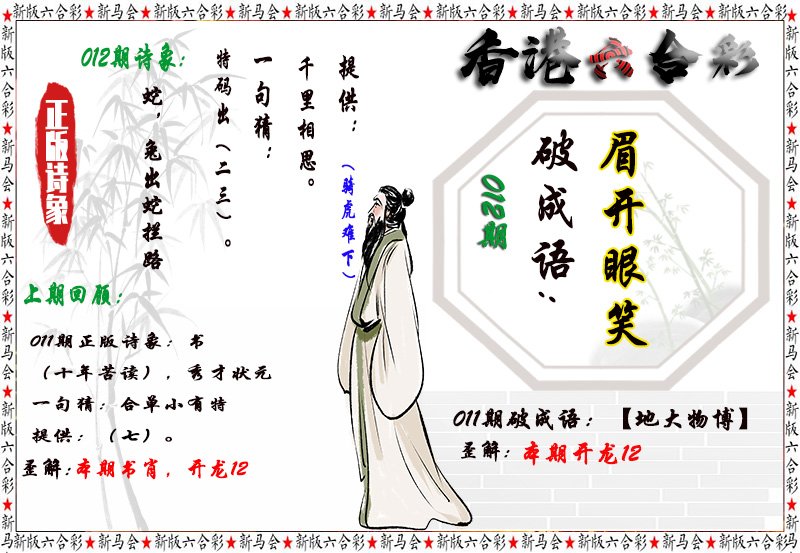 新版六合彩★新马会★新版六合彩★新马会★新版六合彩★新马会★新版六合彩★新马会★新版六合彩★新马会★新版六合彩
香港六合彩
012期
破成语：
眉开眼笑
011期破成语：【地大物博】
歪解：本期开龙12
提供：
（骑虎难下）
千里相思。
一句猜：
特码出（二三）。
012期诗象：
蛇，兔出蛇拦路
正版诗象
上期回顾：
011期正版诗象：书
（十年苦读），秀才状元
一句猜：合单小有特
提供：（七）。
歪解：本期书肖，开龙12
新马会★新版六合彩★新马会★新版六合彩★新马会★新版六合彩★新马会★新版六合彩★新马会★新版六合彩★新马会